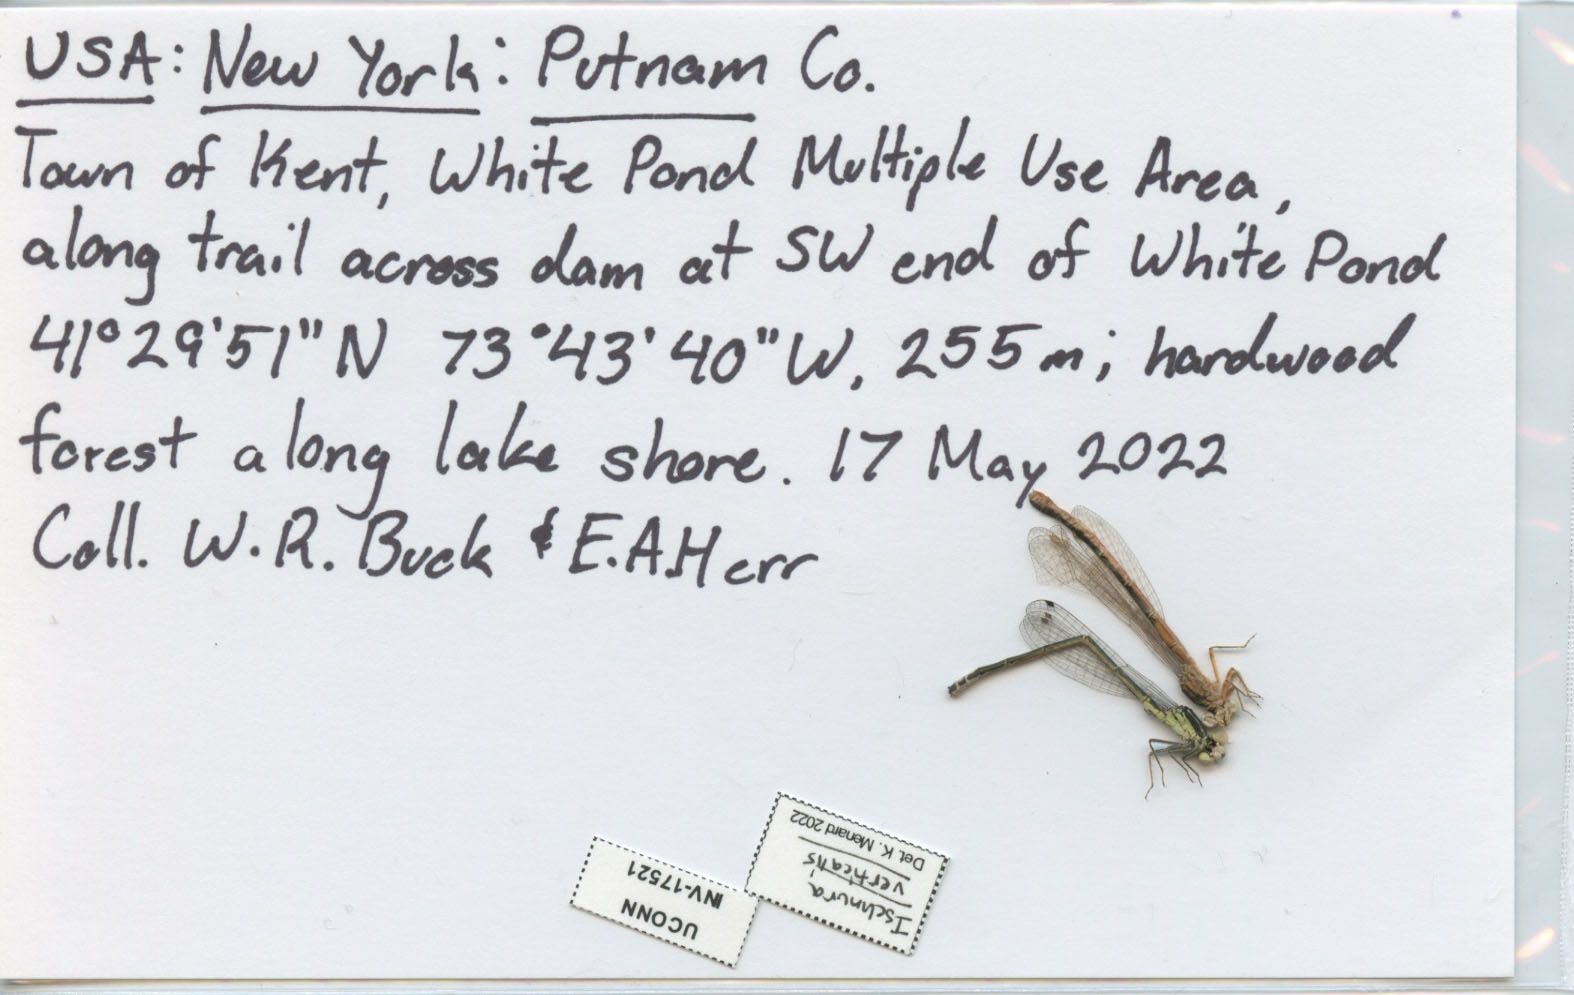 USA: New York: Putnam Co.
Town of Kent, White Pond Multiple Use Area,
along trail across dam at SW end of White Pond
41°29'51"N 73°43'40"W, 255m; hardwood
forest along lake shore. 17 May 2022
Coll. W.R. Buck & E.A.Herr
Ischnura
verticalis
Det. K. Menard 2022
UCONN
INV-17521